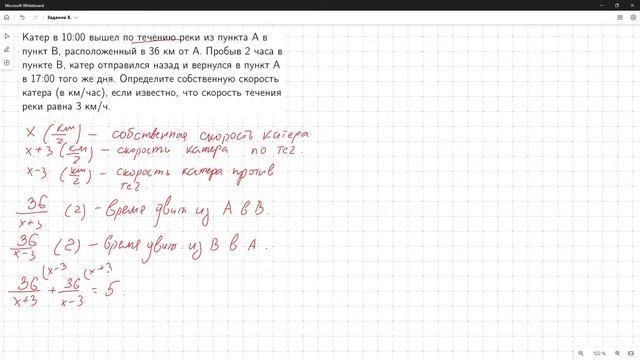 Microsoft Whiteboard
Задание 8.
Катер в 10:00 вышел по течению реки из пункта А в
пункт В, расположенный в 36 км от А. Пробыв 2 часа в
пункте В, катер отправился назад и вернулся в пункт А
в 17:00 того же дня. Определите собственную скорость
катера (в км/час), если известно, что скорость течения
реки равна 3 км/ч.
x (км/г) – собственная скорость катера
x+3 (км/г) – скорости катера по теч.
x-3 (км/г) – скорость катера против
теч.
36/(x+3) (г) – время движ из А в В.
36/(x-3) (г) – время движ. из В в А.
(x-3 (x+3
36/(x+3) + 36/(x-3) = 5
102 %